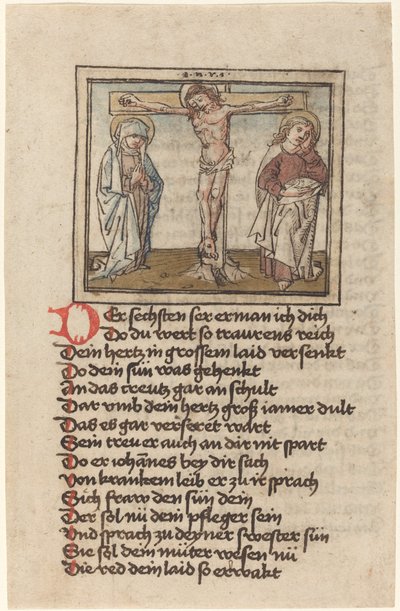 ·I·N·R·I·
Der sechsten ser erman ich dich
Do du wert so traurens reich
Dein hertz in grossem laid versenkt
Do dein sün was gehenkt
An das creutz gar an schult
Dar vmb dein hertz groß iamer dult
Das es gar verseret wart
Sein treu er auch an dir nit spart
Do er iohānes bey dir sach
Von krankem leib er zu ir sprach
Sich fraw den sün dein
Der sol nü dein pfleger sein
Vnd sprach zu deyner swester sün
Sie sol dein müter wesen nü
Die red dein laid so erwakt